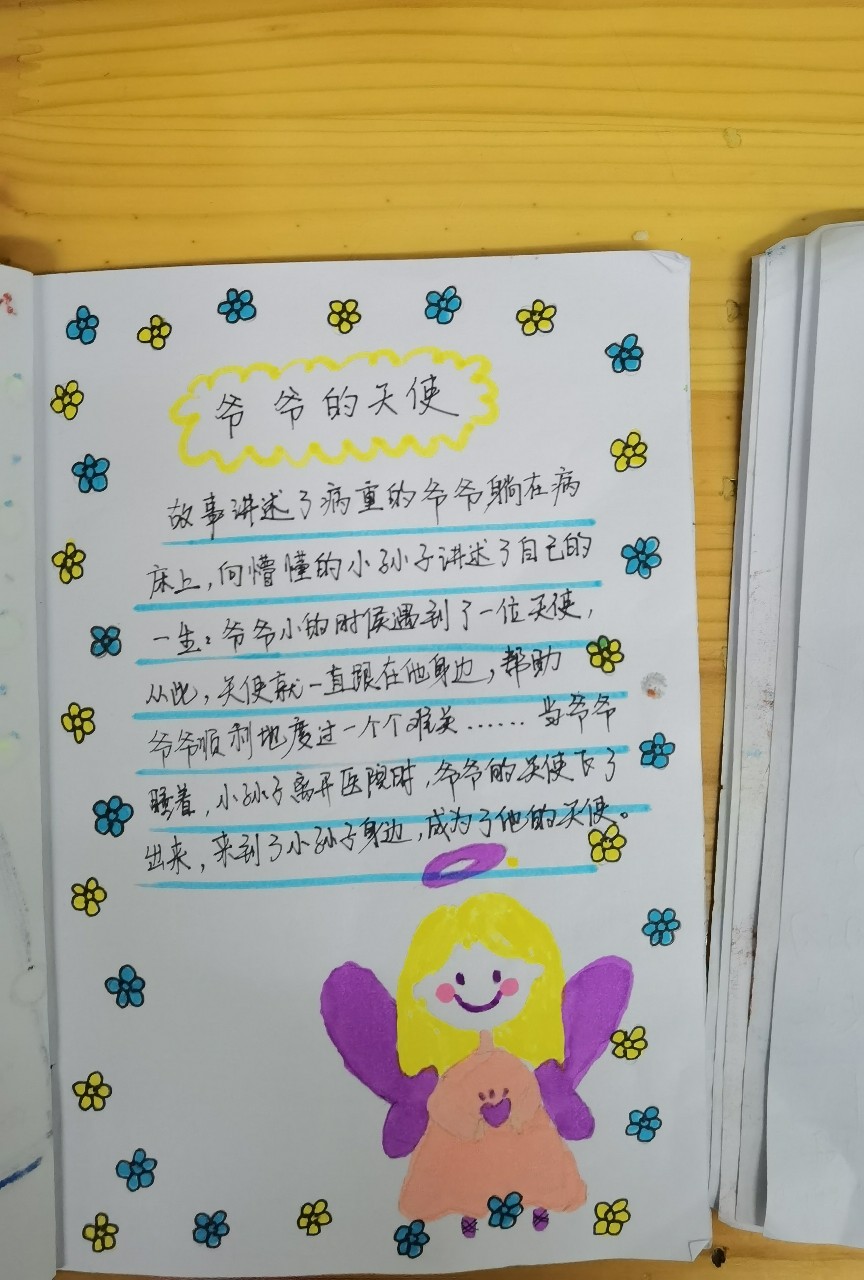 爷爷的天使
故事讲述了病重的爷爷躺在病
床上,向懵懂的小孙子讲述了自己的
一生:爷爷小的时候遇到了一位天使,
从此,天使就一直跟在他身边,帮助
爷爷顺利地度过一个个难关……当爷爷
睡着,小孙子离开医院时,爷爷的天使飞了
出来,来到了小孙子身边,成为了他的天使。